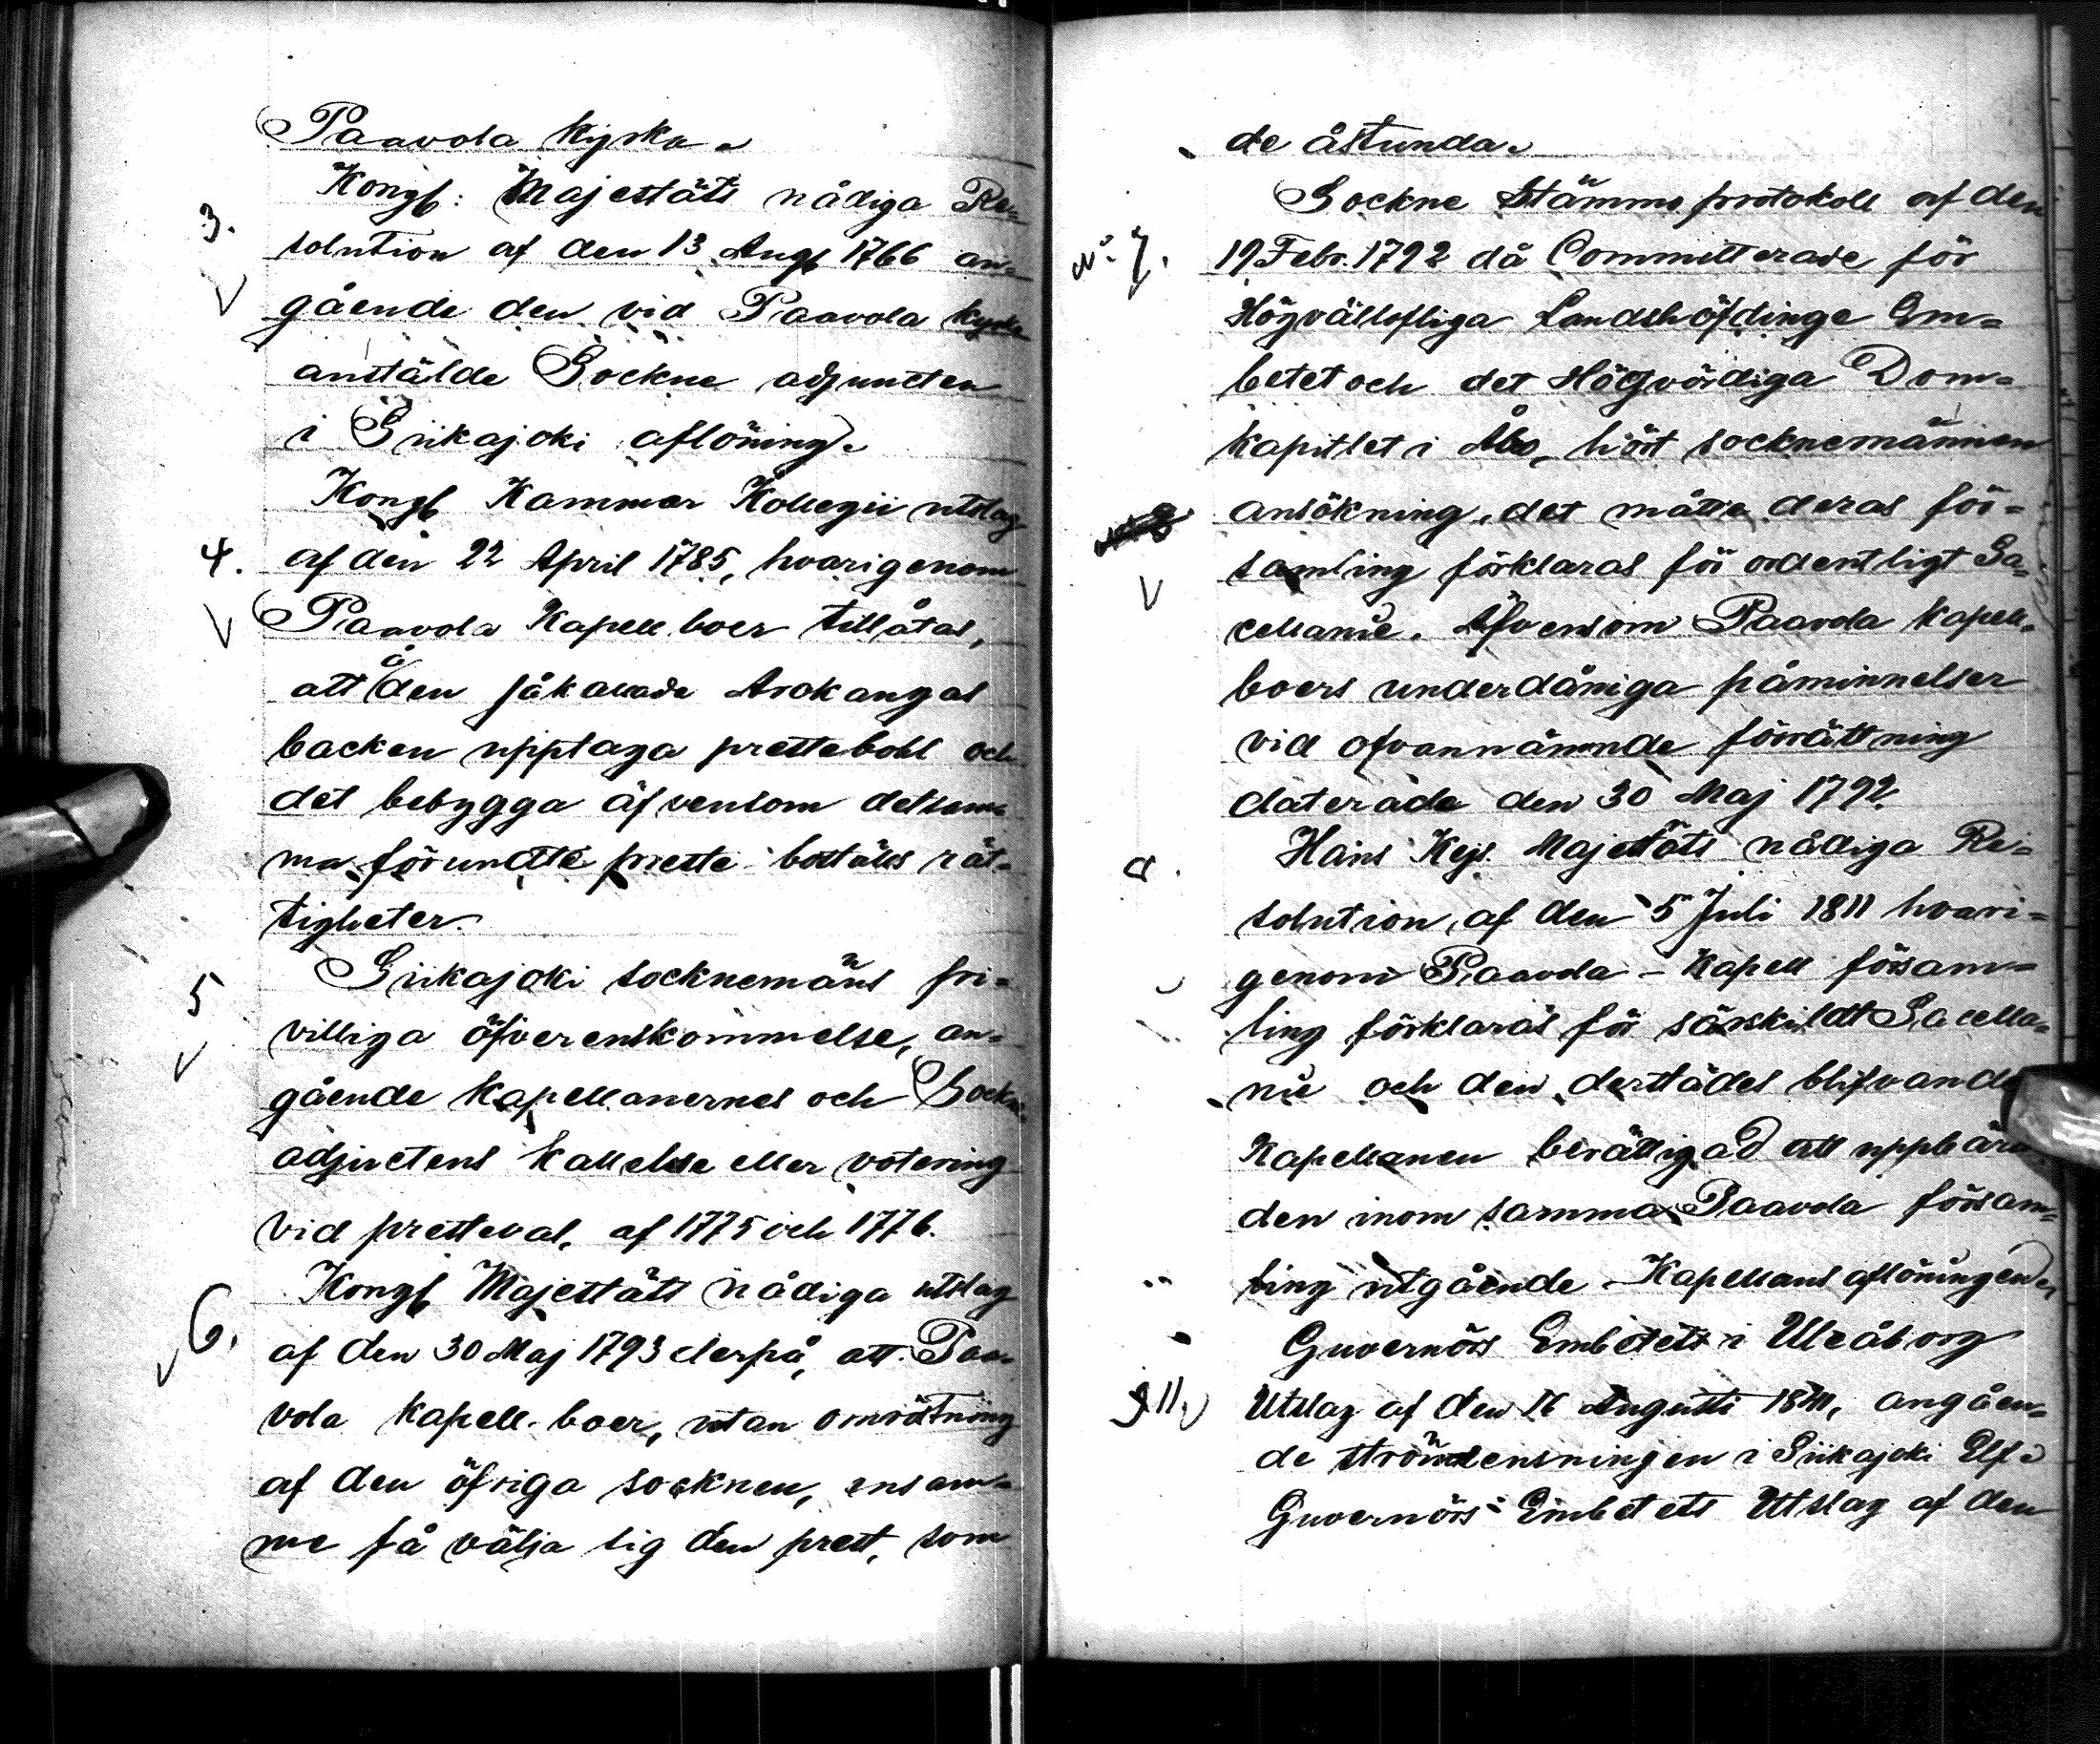 Paavola kyrka.
Kongl: Majestäts nådiga Re=
3. solution af den 13 Augs 1766 an=
gående den vid Paavola kyrka
anstälde Sockne adjuncten
i Siikajoki aflöning.
Kongl Kammar Kollegii utslag
4. af den 22 April 1785, hvarigenom
Paavola Kapell boer tillåtas,
att å den såkallade Arokangas
backen upptaga prestebohl och
det bebygga äfvensom detsam=
ma förundte preste boställs rät=
tigheter.
5 Siikajoki socknemäns fri=
villiga öfverenskommelse, an=
gående kapellanernes och Sockne
adjuctens kallelse eller votering
vid presteval, af 1775 och 1776.
Kongl Majestäts nådiga utslag
6. af den 30 Maj 1793 derpå, att Paa=
vola kapell-boer, utan omröstning
af den öfriga socknen, ensam=
me få välja sig den prest, som
de åstunda.
Sockne Stämmo protokoll af den
n:o 7. 19 Febr. 1792 då Committerade för
Högvällofliga Landshöfdinge Em=
betet och det Högvördiga Dom=
kapitlet i Åbo, hört socknemännen
ansökning, det måtte deras för=
samling förklaras för ordentligt Sa=
cellanie. Äfvensom Paavola kapell=
boers underdåniga påminnelser
vid ofvannämnde förrättning
daterade den 30 Maj 1792.
Hans Kejs. Majestäts nådiga Re=
solution af den 5 Juli 1811 hvari=
genom Paavola - Kapell försam=
ling förklaras för särskildt Sacella=
nie och den derstädes blifvande
Kapellanen berättigad att uppbära
den inom samma Paavola försam=
ling utgående Kapellans aflöningen.
Guvernörs Embetets i Uleåborg
11. Utslag af den 16 Augusti 1841, angåen=
de strömrensningen i Siikajoki Elf.
Guvernörs Embetets Utslag af den